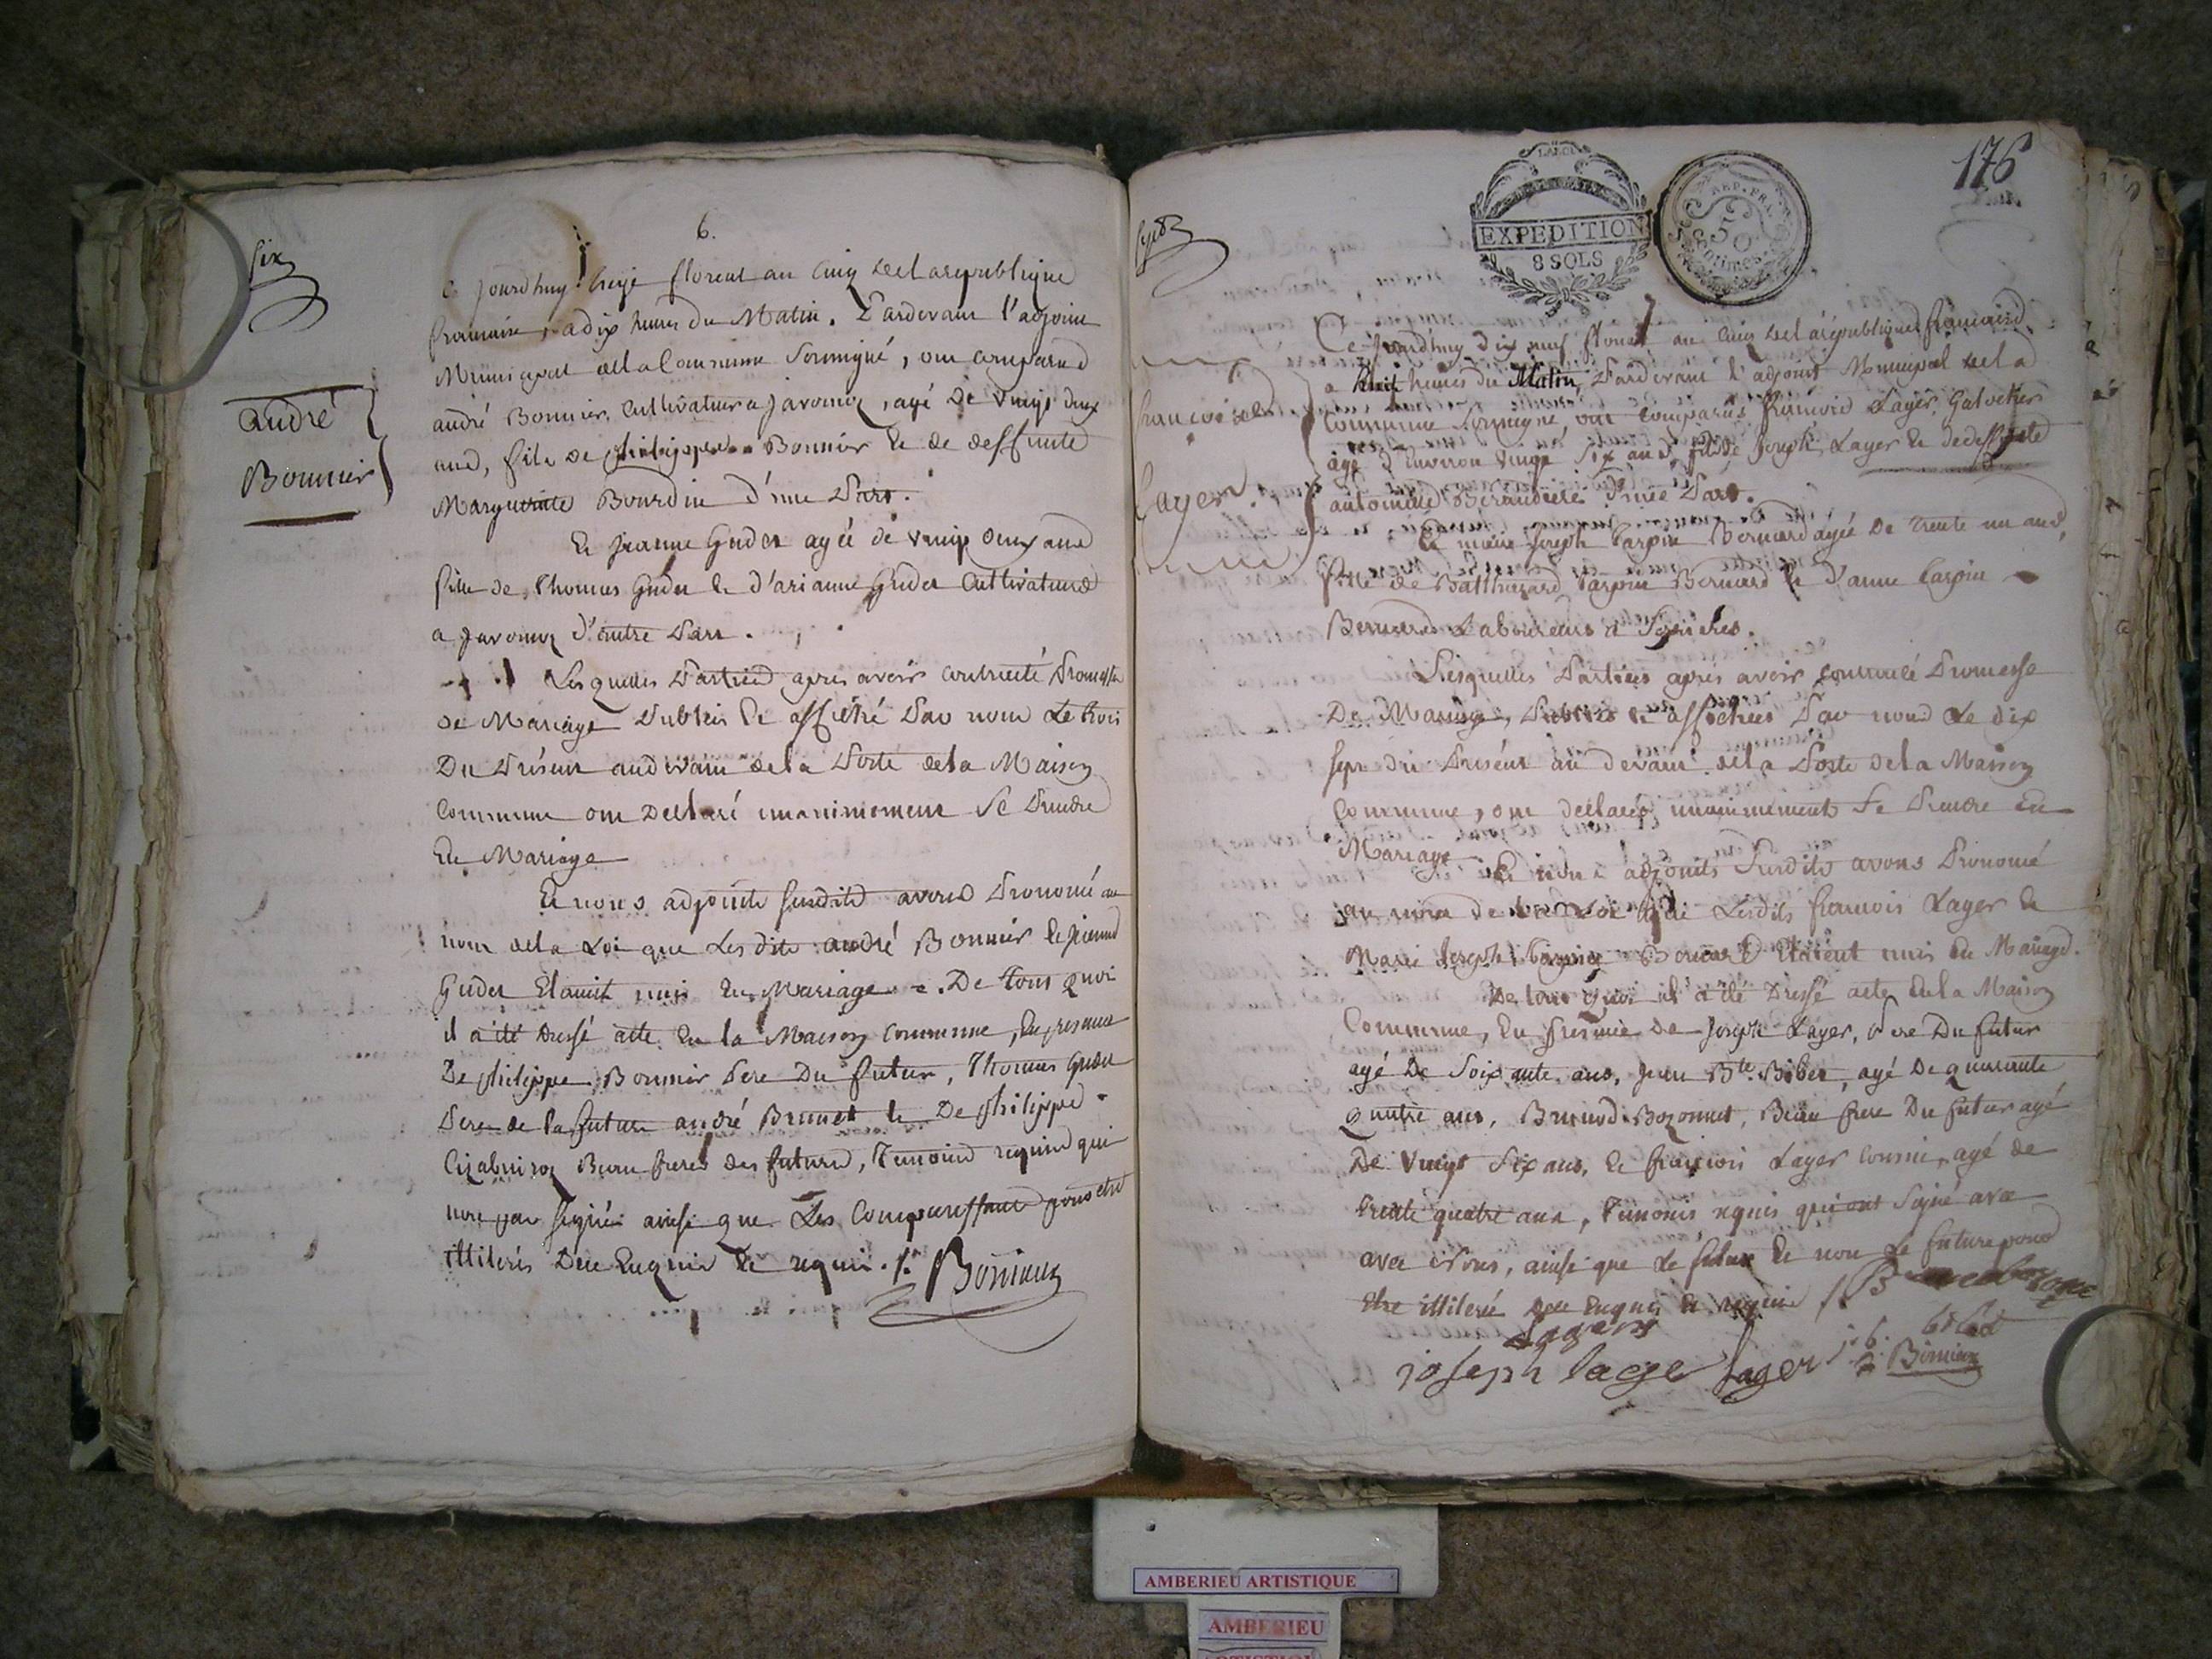 6.
six
Ce jourdhuy treize floreal an cinq de la republique
francaise, a dix heures du Matin. Pardevant l'adjoint
Municipal de la Commune soussigné, ont comparus
andré Bonnier, Cultivateur a javornoz, agé de vingt deux
ans, fils de philippe Bonnier et de deffunte
Marguerite Bourdin d'une Part.
andré
Bonnier
Et jeanne Guder agée de vingt deux ans
fille de thomas Guder et d'arianne Guder Cultivateurs
a javornoz d'autre Part.
Lesquelles Parties apres avoir contracté Promesse
de Mariage Publiée et affiché Par nous Le trois
Du Présent au devant de la Porte de la Maison
Commune ont Declaré unanimement Se Prendre
En Mariage
Et nous adjoints susdits avons Prononcé au
nom de la Loi que Lesdits andré Bonnier et jeanne
Guder Etaient unis En Mariage. De tous quoi
il a été Dressé acte En la Maison Commune, En presence
De philippe Bonnier Pere Du futur, Thomas Guder
Pere de la future andré Brunet et De philippe
Beau freres des futurs, Temoins requis qui
non pas signés ainsi que Les Comparissant pour etre
illiterés Dece Enquis Et requis. /. Bonnieux
176
sept
EXPEDITION
8 SOLS
REP. FRA.
50
Centimes
Ce jourdhuy dix neuf floreal an Cinq de la république francaise,
a huit heures du Matin, Pardevant l'adjoint Municipal de la
Commune soussigné, ont Comparus francois Layer, Galocher
agé d'Environ vingt Six ans, fils de Joseph Layer et de deffunte
antoinette Beraudiere d'une Part.
francois
Layer
Et marie joseph Carpin Bernard agée De trente un ans,
fille de Balthazard Carpin Bernard Et d'anne Carpin
Bernard Laboureurs a
Lesquelles Parties aprés avoir contracté Promesse
De Mariage, Publiées et affichées Par nous Le dix
sept du Présent au devant de la Porte de la Maison
Commune, ont declarés unanimement Se Prendre En
Mariage
Et nous adjoints Susdits avons Prononcé
au nom de la Loi que Lesdits francois Layer Et
Marie joseph Carpin Bernard Etaient unis En Mariage.
De tout quoi il a été Dressé acte En la Maison
Commune, En presence de joseph Layer, Pere Du futur
agé De Soixante ans, jean Bte Bibet, agé De quarante
quatre ans, Bernard Bozonnet, Beau frere Du futur agé
De vingt Six ans, Et francois Layer Cousin, agé de
trente quatre ans, Temoins requis qui ont Signé avec
avec Nous, ainsi que Le futur Et non La future pour
Etre illiterée Dece Enquis Et requise /.
Layer
joseph lager Lager j. b. bibet
Bonnieux
AMBERIEU ARTISTIQUE
AMBERIEU